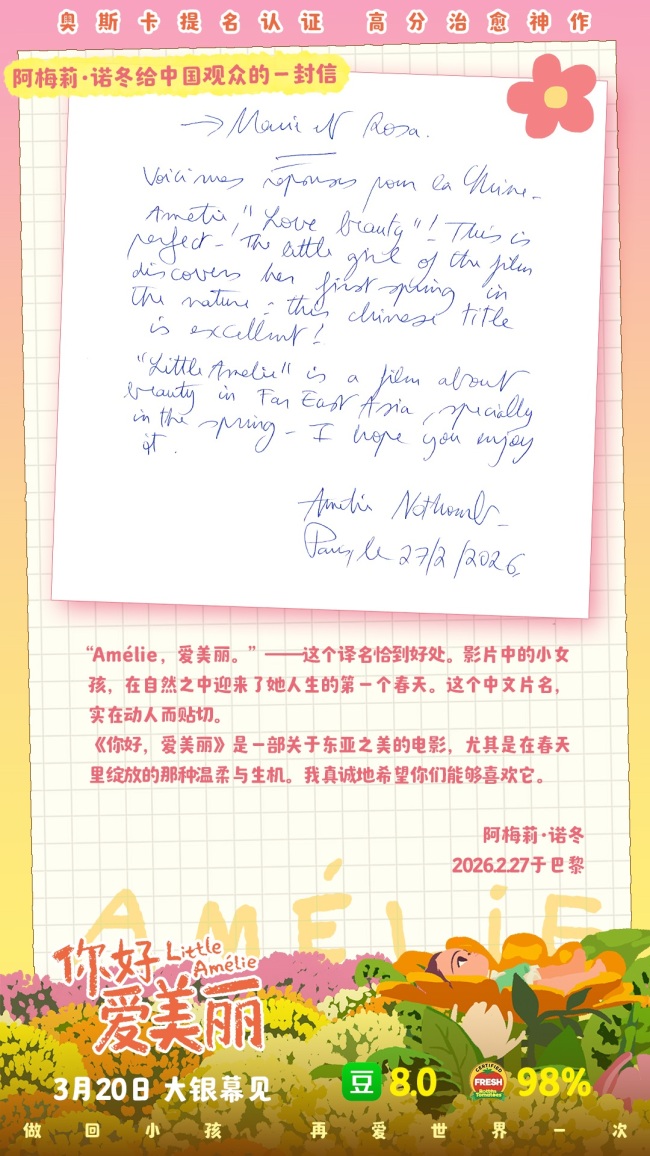 奥斯卡提名认证 高分治愈神作
阿梅莉·诺冬给中国观众的一封信
→ Marie et Rosa.
Voici mes réponses pour la Chine.
Amélie, "Love beauty"! This is
perfect! The little girl of the film
discovers her first spring in
the nature: this chinese title
is excellent!
"Little Amélie" is a film about
beauty in Far East Asia, specially
in the spring - I hope you enjoy
it.
Amélie Nothomb
Paris, le 27/2/2026,
“Amélie，爱美丽。”——这个译名恰到好处。影片中的小女
孩，在自然之中迎来了她人生的第一个春天。这个中文片名，
实在动人而贴切。
《你好，爱美丽》是一部关于东亚之美的电影，尤其是在春天
里绽放的那种温柔与生机。我真诚地希望你们能够喜欢它。
阿梅莉·诺冬
2026.2.27于巴黎
AMÉLiE
你好 Little
Amélie
爱美丽
3月20日 大银幕见
豆 8.0 CERTIFIED FRESH Rotten Tomatoes 98%
做回小孩 再爱世界一次